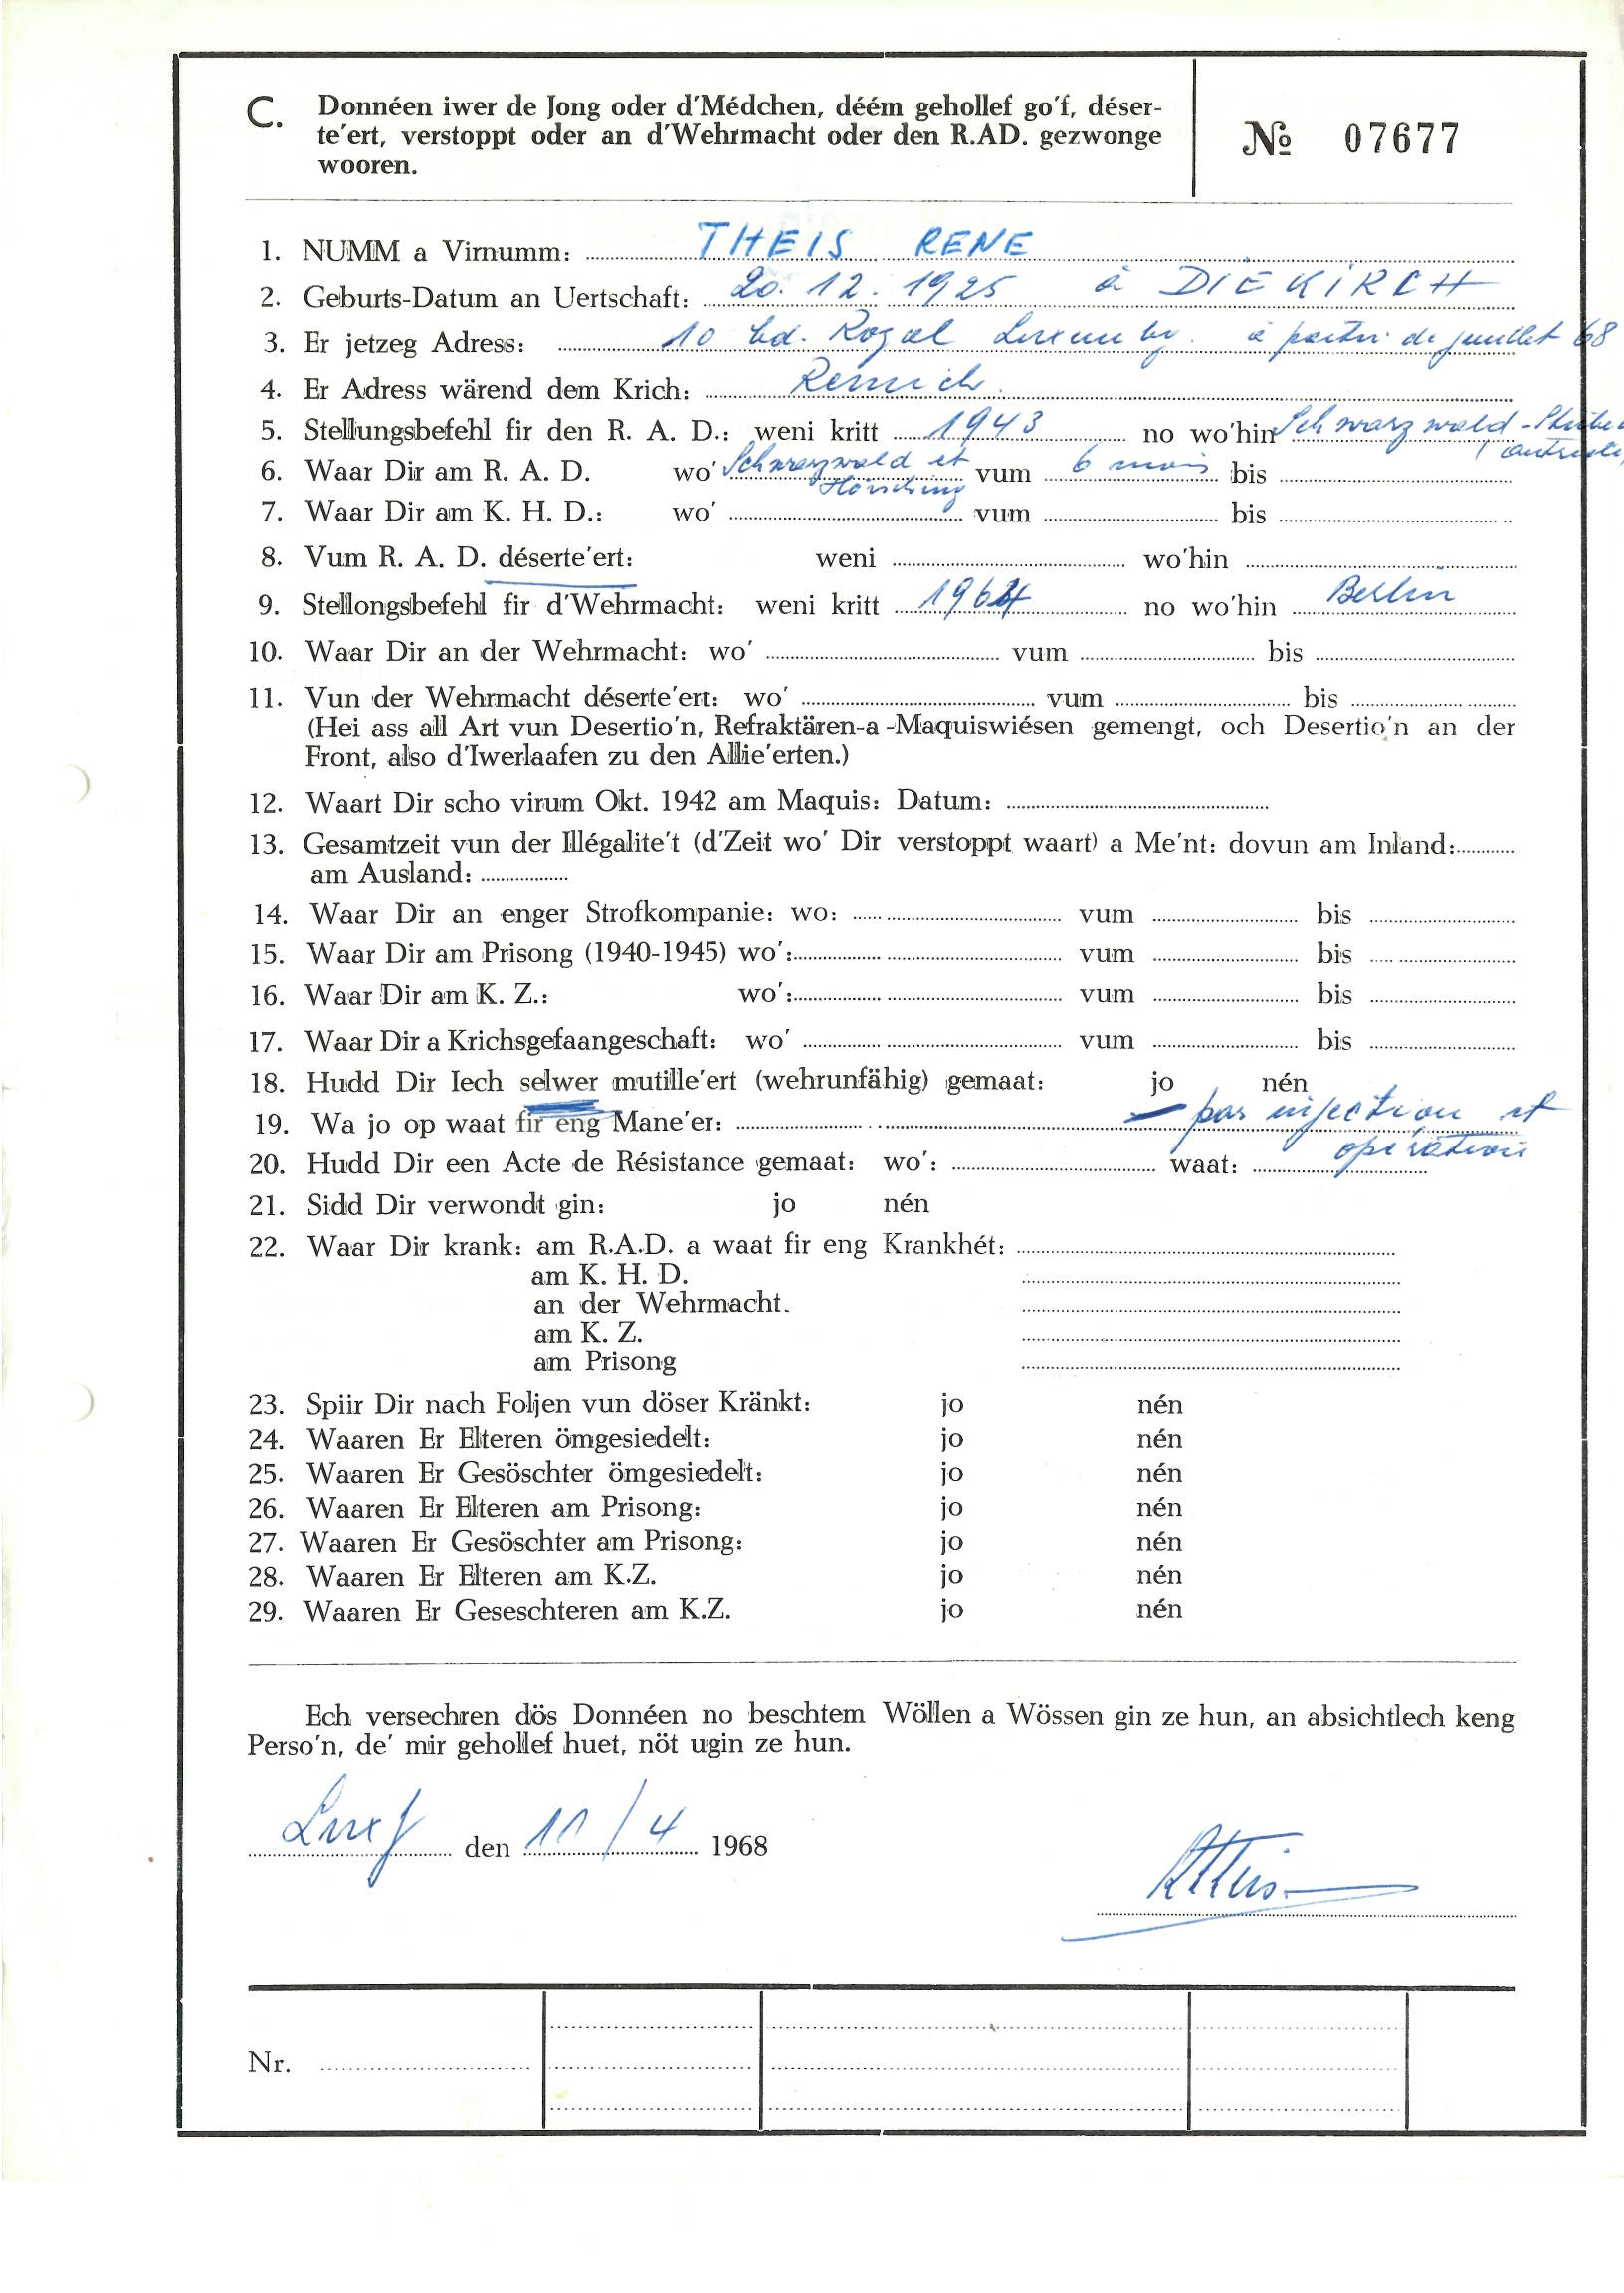 C. Donnéen iwer de Jong oder d'Médchen, déém gehollef go'f, déser-
te'ert, verstoppt oder an d'Wehrmacht oder den R.AD. gezwonge
wooren.
№ 07677
1. NUMM a Virnumm: THEIS RENE
2. Geburts-Datum an Uertschaft: 20. 12. 1925 à DIEKIRCH
3. Er jetzeg Adress: 10 bd. Royal Luxembg. à partir de juillet 68
4. Er Adress wärend dem Krich: Remich.
5. Stellungsbefehl fir den R. A. D.: weni kritt 1943 no wo'hin Schwarzwald -
6. Waar Dir am R. A. D. wo' Schwarzwald et Hörsching vum 6 mois bis
7. Waar Dir am K. H. D.: wo' vum bis
8. Vum R. A. D. déserte'ert: weni wo'hin
9. Stellongsbefehl fir d'Wehrmacht: weni kritt 1964 no wo'hin Berlin
10. Waar Dir an der Wehrmacht: wo' vum bis
11. Vun der Wehrmacht déserte'ert: wo' vum bis
(Hei ass all Art vun Desertio'n, Refraktären-a-Maquiswiésen gemengt, och Desertio'n an der
Front, also d'Iwerlaafen zu den Allie'erten.)
12. Waart Dir scho virum Okt. 1942 am Maquis: Datum:
13. Gesamtzeit vun der Illégalite't (d'Zeit wo' Dir verstoppt waart) a Me'nt: dovun am Inland:
am Ausland:
14. Waar Dir an enger Strofkompanie: wo: vum bis
15. Waar Dir am Prisong (1940-1945) wo': vum bis
16. Waar Dir am K. Z.: wo': vum bis
17. Waar Dir a Krichsgefaangeschaft: wo' vum bis
18. Hudd Dir Iech selwer mutille'ert (wehrunfähig) gemaat: jo nén
19. Wa jo op waat fir eng Mane'er: par injection et
opération
20. Hudd Dir een Acte de Résistance gemaat: wo': waat:
21. Sidd Dir verwondt gin: jo nén
22. Waar Dir krank: am R.A.D. a waat fir eng Krankhét:
am K. H. D.
an der Wehrmacht.
am K. Z.
am Prisong
23. Spiir Dir nach Foljen vun döser Kränkt: jo nén
24. Waaren Er Elteren ömgesiedelt: jo nén
25. Waaren Er Gesöschter ömgesiedelt: jo nén
26. Waaren Er Elteren am Prisong: jo nén
27. Waaren Er Gesöschter am Prisong: jo nén
28. Waaren Er Elteren am K.Z. jo nén
29. Waaren Er Geseschteren am K.Z. jo nén
Ech versechren dös Donnéen no beschtem Wöllen a Wössen gin ze hun, an absichtlech keng
Perso'n, de' mir gehollef huet, nöt ugin ze hun.
Luxbg den 11/4 1968
RTheis
Nr.